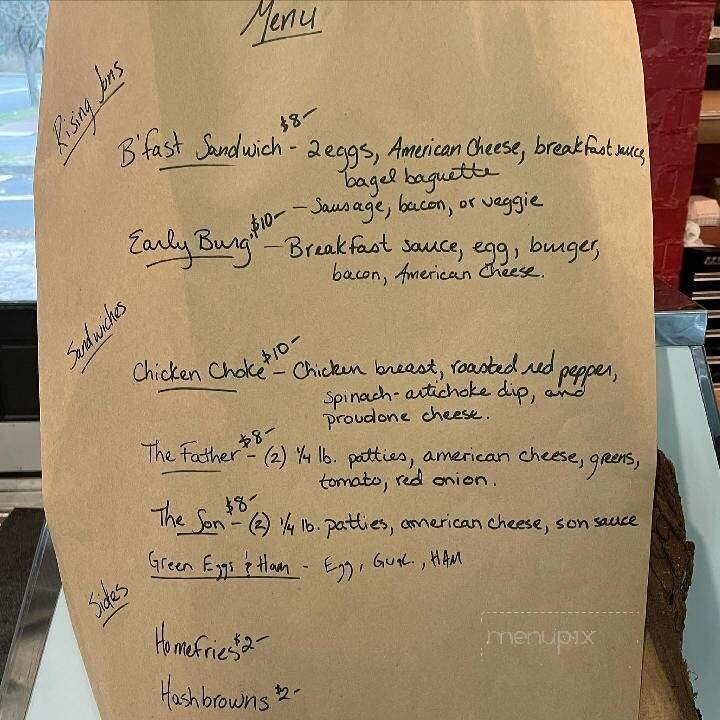 Menu
Rising Jons
$8-
B'fast Sandwich - 2 eggs, American Cheese, breakfast sauce,
bagel baguette
- Sausage, bacon, or veggie
$10-
Early Burg' - Breakfast sauce, egg, burger,
bacon, American Cheese.
Sandwiches
$10-
Chicken Choke - Chicken breast, roasted red pepper,
spinach-artichoke dip, and
proudone cheese.
$8-
The Father - (2) 1/4 lb. patties, american cheese, greens,
tomato, red onion.
$8-
The Son - (2) 1/4 lb. patties, american cheese, son sauce
Green Eggs & Ham - Egg, Guac., HAM
Sides
Homefries $2-
Hashbrowns $2-
menupix